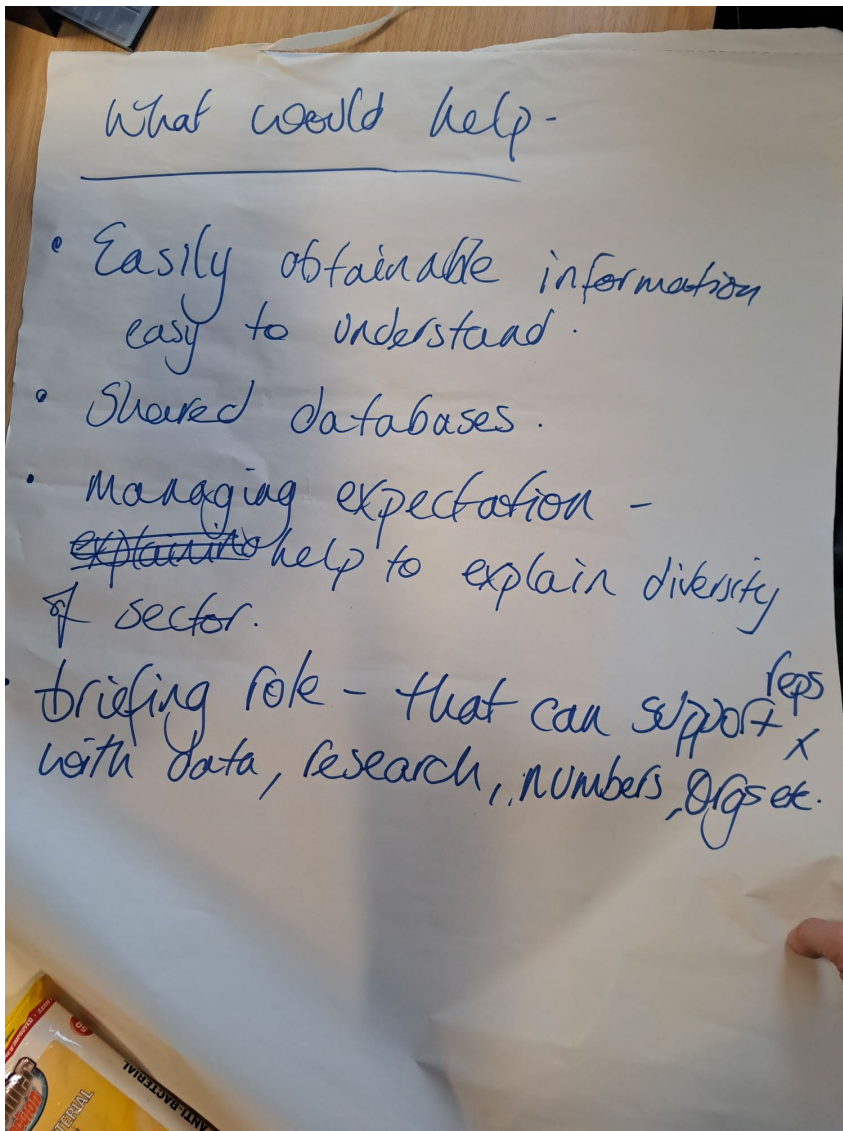 What would help -
• Easily obtainable information
easy to understand.
• Shared databases.
• Managing expectation -
explaining help to explain diversity
of sector.
• briefing role - that can support reps
x
with data, research, numbers, orgs etc.
ANTI-BACTERIAL
TERIAL
50